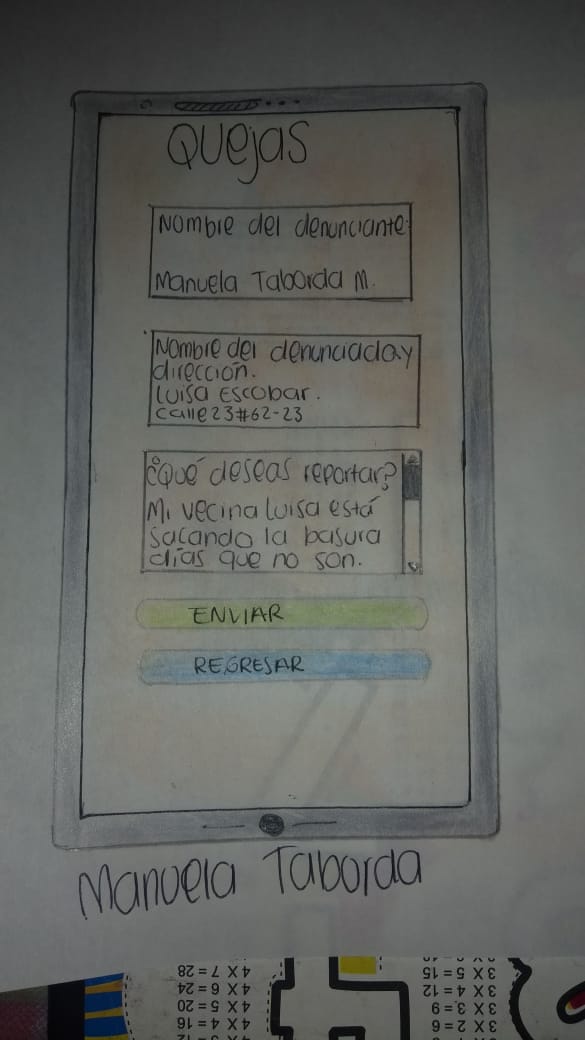 Quejas
Nombre del denunciante:
Manuela Taborda M.
Nombre del denunciado y
dirección.
Luisa Escobar.
calle 23#62-23
¿Qué deseas reportar?
Mi vecina Luisa está
sacando la basura
días que no son.
ENVIAR
REGRESAR
Manuela Taborda
4 X 7 = 28
4 X 6 = 24
4 X 5 = 20
4 X 4 = 16
3 X 5 = 15
3 X 4 = 12
3 X 3 = 9
3 X 2 = 6